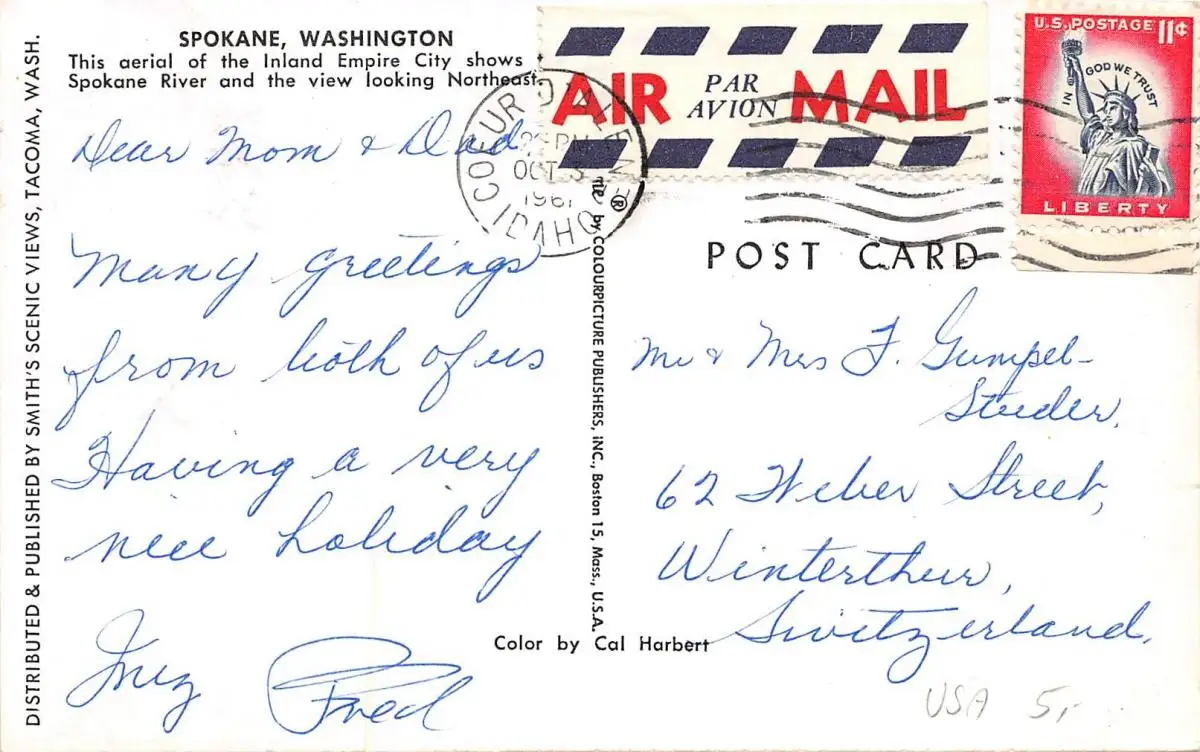 SPOKANE, WASHINGTON
This aerial of the Inland Empire City shows
Spokane River and the view looking Northeast.
Dear Mom & Dad
Many greetings
from both of us
Having a very
nice holiday
Inez Fred
DISTRIBUTED & PUBLISHED BY SMITH'S SCENIC VIEWS, TACOMA, WASH.
by COLOURPICTURE PUBLISHERS, INC., Boston 15, Mass., U.S.A.
®
Color by Cal Harbert
AIR PAR AVION MAIL
COEUR D'ALENE
PM
OCT 3
1961
IDAHO
U.S. POSTAGE 11¢
IN GOD WE TRUST
LIBERTY
POST CARD
Mr & Mrs F. Gumpel-
Studer,
62 Weber Street,
Winterthur,
Switzerland.
USA 5,-